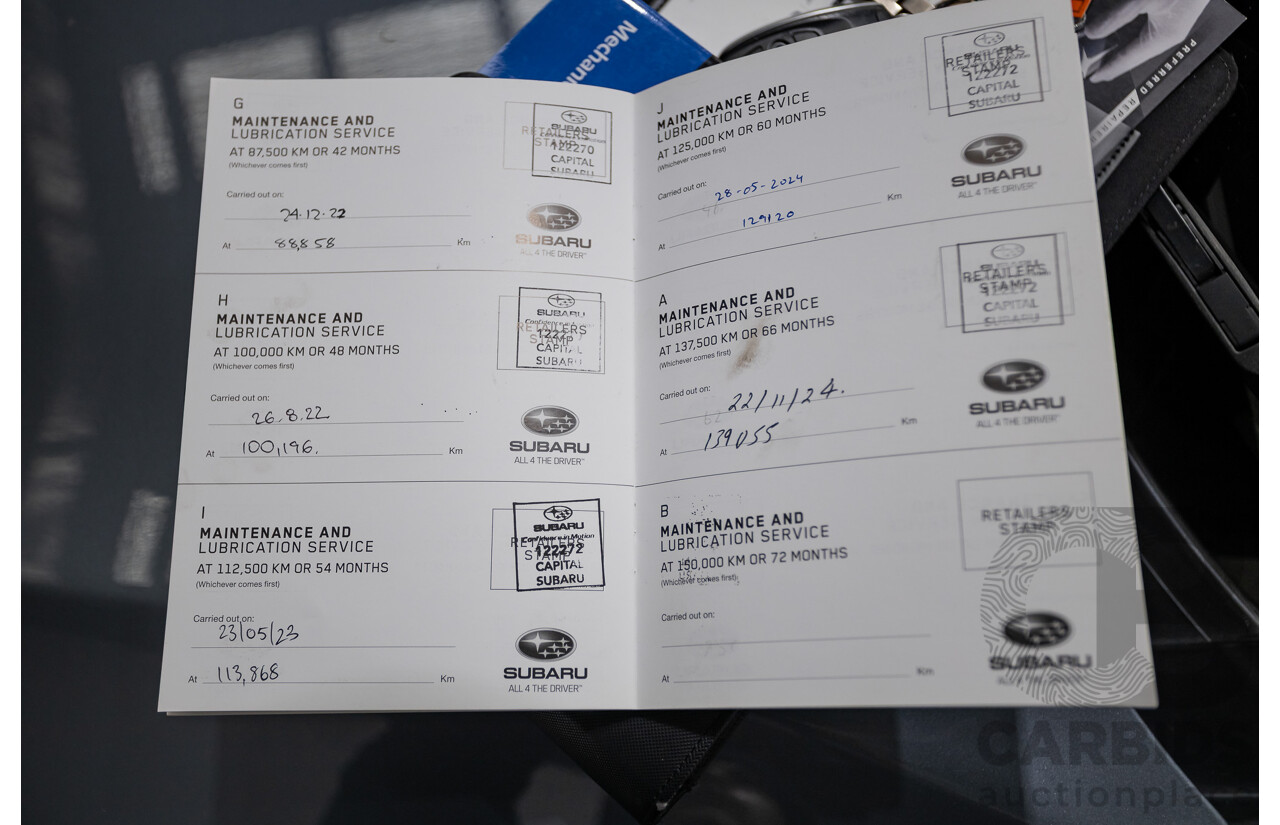 Mechan
PREFERRED
REPAIRE
G
MAINTENANCE AND
LUBRICATION SERVICE
AT 87,500 KM OR 42 MONTHS
(Whichever comes first)
RETAILERS
STAMP
SUBARU
122270
CAPITAL
SUBARU
Carried out on:
24.12.22
At 88,858 Km
SUBARU
ALL 4 THE DRIVER™
H
MAINTENANCE AND
LUBRICATION SERVICE
AT 100,000 KM OR 48 MONTHS
(Whichever comes first)
RETAILERS
STAMP
SUBARU
CAPITAL
SUBARU
Carried out on:
26.8.22
At 100,196. Km
SUBARU
ALL 4 THE DRIVER™
I
MAINTENANCE AND
LUBRICATION SERVICE
AT 112,500 KM OR 54 MONTHS
(Whichever comes first)
RETAILERS
STAMP
SUBARU
Confidence in Motion
122272
CAPITAL
SUBARU
Carried out on:
23/05/23
At 113,868 Km
SUBARU
ALL 4 THE DRIVER™
J
MAINTENANCE AND
LUBRICATION SERVICE
AT 125,000 KM OR 60 MONTHS
(Whichever comes first)
RETAILERS
STAMP
122272
CAPITAL
SUBARU
Carried out on:
28-05-2024
At 129120 Km
SUBARU
ALL 4 THE DRIVER™
A
MAINTENANCE AND
LUBRICATION SERVICE
AT 137,500 KM OR 66 MONTHS
(Whichever comes first)
RETAILERS
STAMP
122272
CAPITAL
SUBARU
Carried out on:
22/11/24.
At 139055 Km
SUBARU
ALL 4 THE DRIVER™
B
MAINTENANCE AND
LUBRICATION SERVICE
AT 150,000 KM OR 72 MONTHS
(Whichever comes first)
RETAILERS
STAMP
Carried out on:
At Km
SUBARU
ALL 4 THE DRIVER™
CARBIDS
auctionpla